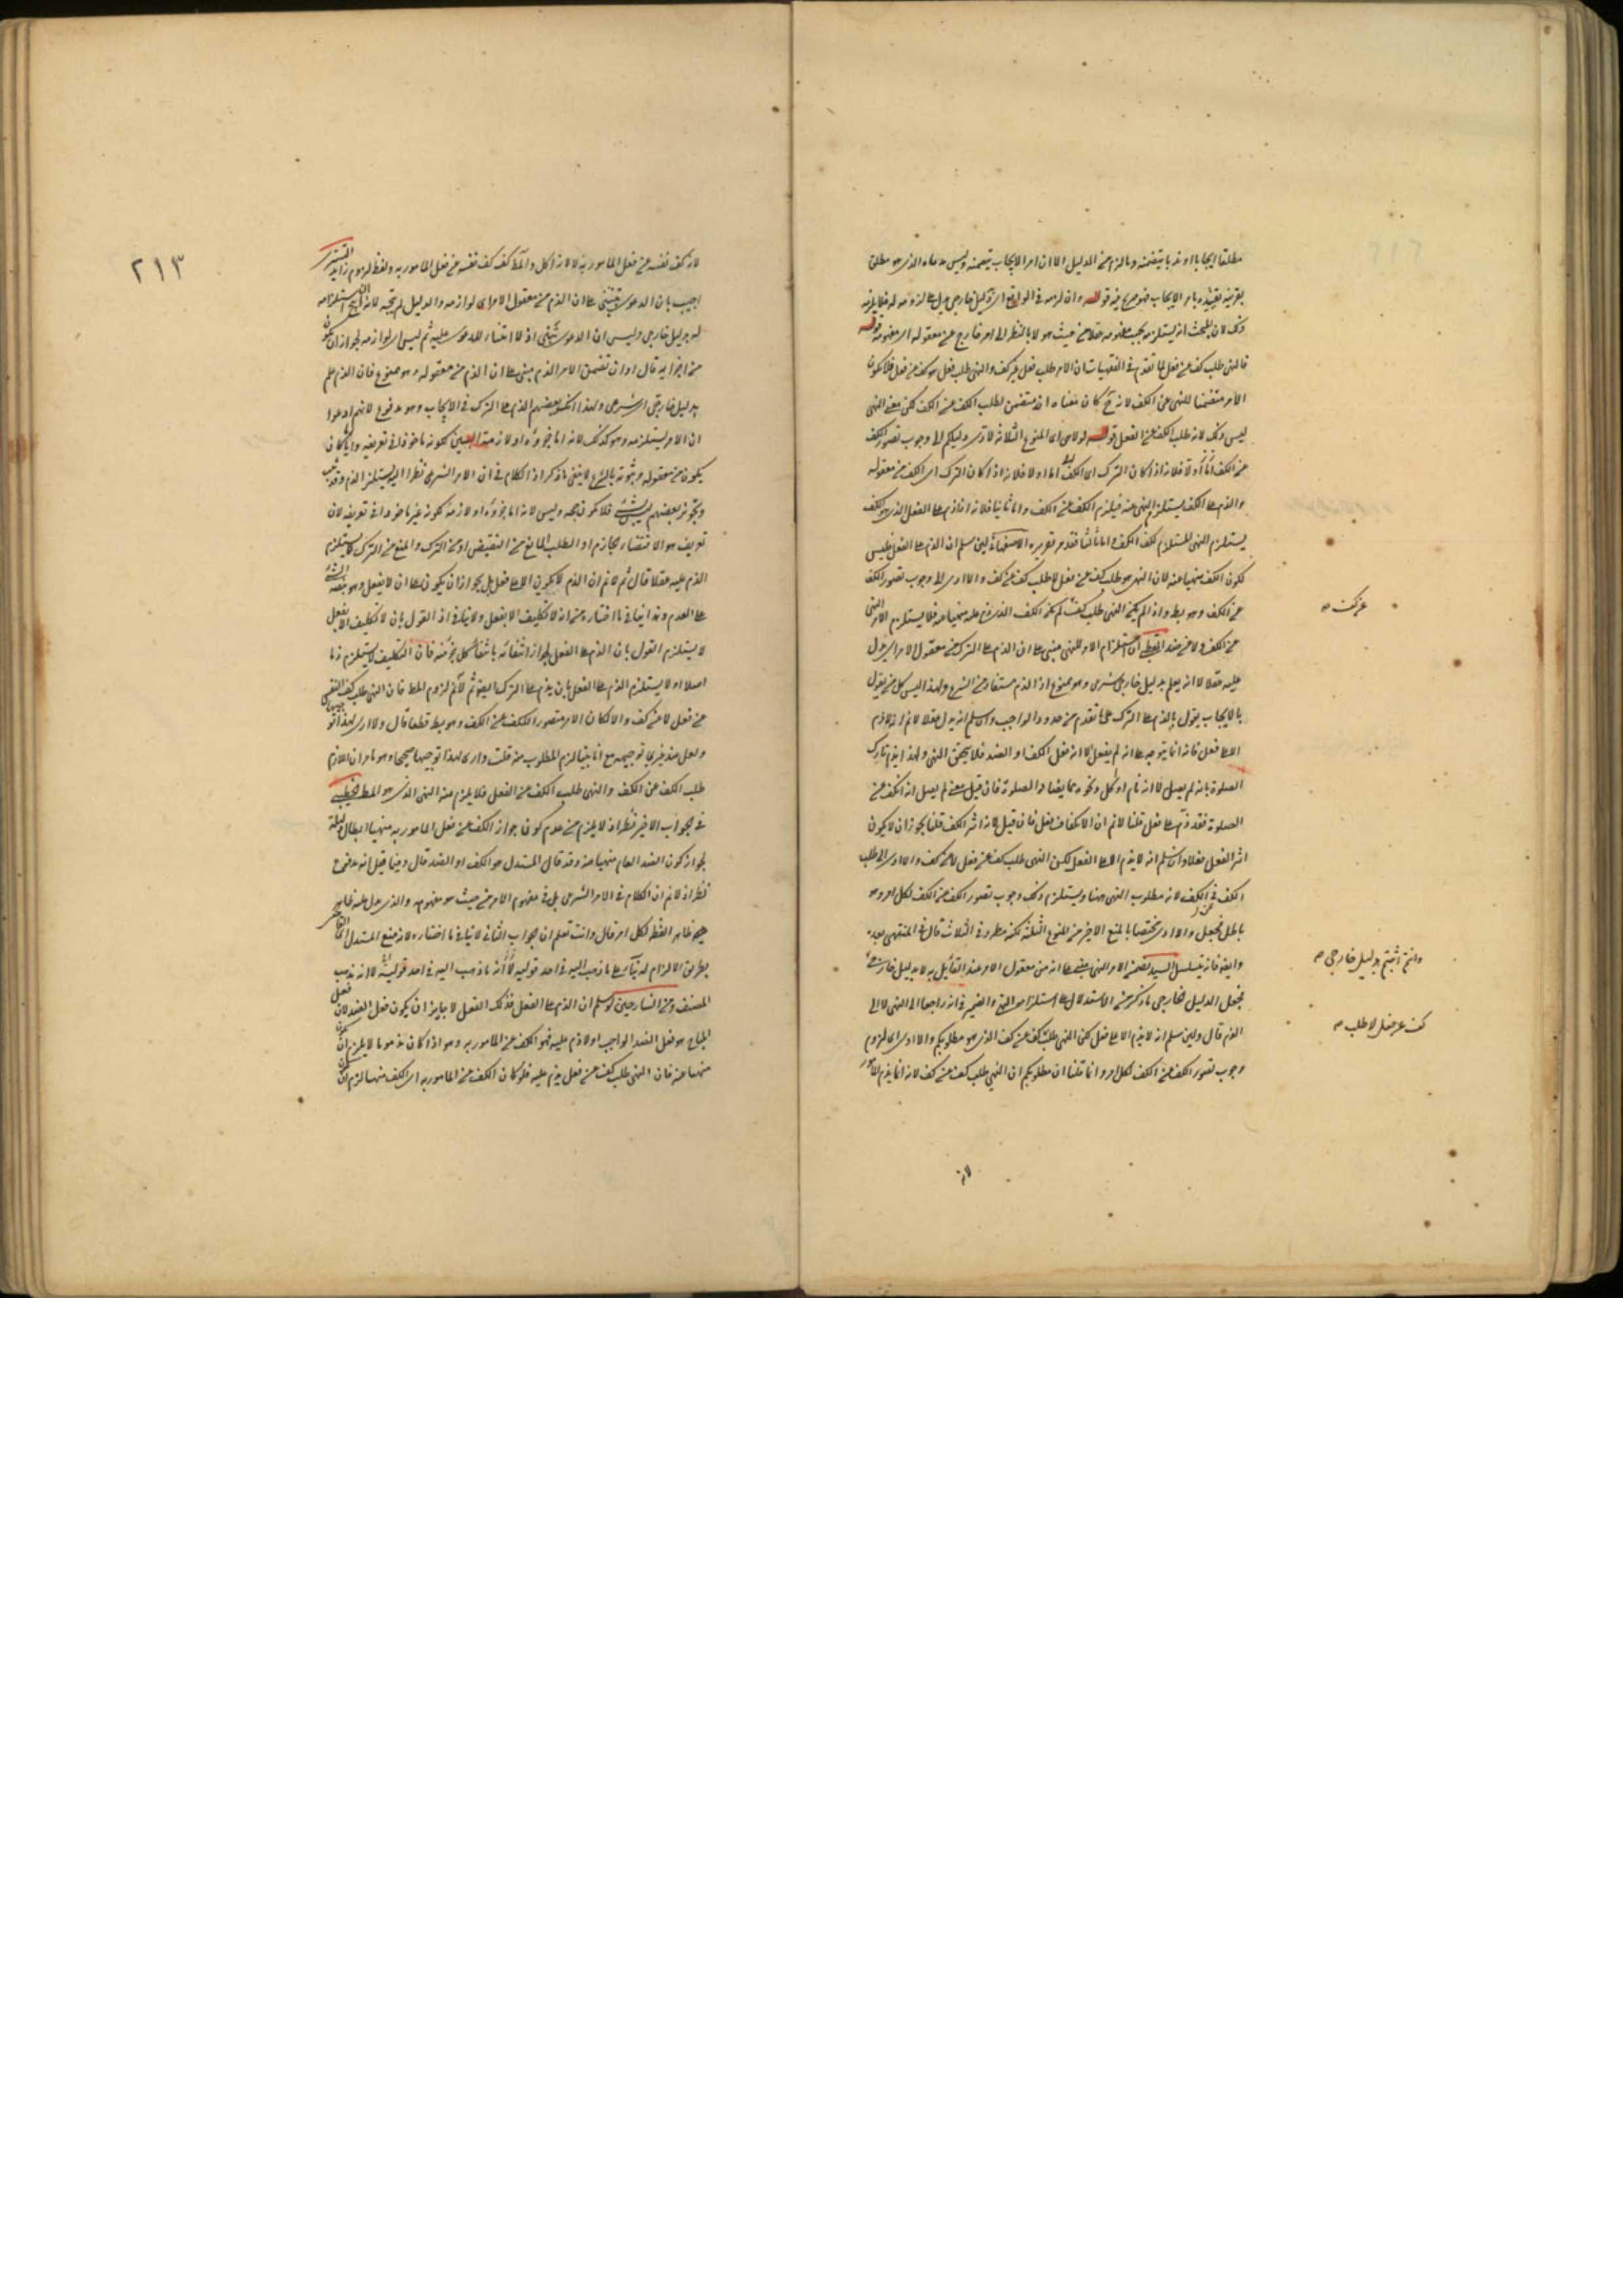 مطلقا ايجابا او ندبا يتضمنه وما لزم من الدليل الا ان امر الايجاب يتضمنه وليس مدعاه الذي هو مطلق
بقرينة تقييده بامر الايجاب قوله وان لزمه في الواقع اي دليل خارجي يدل على لزومه له فلا يلزمه
ذلك لان البحث انه يستلزمه بحسب مفهومه عقلا من حيث هو لا بالنظر الى امر خارج عن معقوله اي مفهومه قوله
فالنهي طلب كف عن فعل لما تقدم في ان الامر طلب فعل غير كف والنهي طلب فعل هو كف عن فعل فلا يكون
الامر متضمنا للنهي عن الكف لانه ح كان معناه انه متضمن لطلب الكف عن الكف لكن معنى النهي
ليس ذلك لانه طلب الكف عن الفعل قوله المنوع الثلاثة وجوب تصور الكف
عن الكف اما اولا فلانه اذا كان الترك اي الكف من معقوله
والذم على الكف يستلزم النهي عنه فيلزم الكف عن الكف واما ثانيا فلانه اذا ذم على الفعل الذي هو الكف
يستلزم النهي المستلزم لكف الكف واما ثالثا فقدم تقريره لئن سلم ان الذم على الفعل فليس
كون الكف منهيا عنه لان النهي هو طلب كف عن فعل لا طلب كف عن كف والا ادى الى وجوب تصور الكف
عن الكف وهو بط واذا لم يكن النهي طلب كف لم يكن الكف الذي ذم عليه منهيا عنه فلا يستلزم الامر النهي
عن الكف ولا عن ضد القطبي استلزام الامر للنهي مبني على ان الذم على الترك من معقول الامر اي يدل
عليه عقلا لا انه يعلم بدليل خارجي شرعي وهو ممنوع اذ الذم مستفاد من الشرع ولهذا ليس كل من يقول
بالايجاب يقول بالذم على الترك على ما تقدم من حدود الواجب وان سلم انه يدل عقلا لا نم انه لا ذم
الا على فعل فانه انما يتوجه على انه لم يفعل لا انه فعل الكف او الضد فلا يتحقق النهي ولهذا يذم تارك
الصلوة بانه لم يصل لا انه نام او اكل ونحوه مما يضاد الصلوة فان قيل معنى لم يصل انه انكف عن
الصلوة فقد ذم على فعل قلنا لا نم ان الانكفاف فعل فان قيل لانه اثر الكف قلنا يجوز ان لا يكون
اثر الفعل فعلا وان سلم انه لا يذم الا على الفعل لكن النهي طلب كف عن فعل لا عن كف والا ادى الى طلب
الكف عن الكف لانه مطلوب النهي ههنا ويستلزم ذلك وجوب تصور الكف عن الكف لكل امر وهو
باطل فجعل والا ادى مختصا بالمنع الاخير من المنوع الثلثة لكنه مطرد في الثلاث قال في المنتهى بعده
وايضا فانه يتسلسل السيد تضمن الامر النهي مبني على انه من معقول الامر عند القائل به لا بدليل خارجي
فجعل الدليل الخارجي ما ذكر من الاستدلال على استلزامه النهي والضمير في انه راجعا الى النهي لا الى
الذم قال ولئن سلم انه لا يذم الا على فعل لكن النهي طلب كف عن كف الذي هو مطلوبكم والا ادى الى لزوم
وجوب تصور الكف عن الكف لكل امر وانما قلنا ان مطلوبكم ان النهي طلب كف عن كف لانه انما يذم المامور
لانه
عن كف صح
وانتم اثبتم بدليل خارجي صح
كف عن فعل لا طلب صح
٢١٣
لانه كف نفسه عن فعل المامور به لا لانه اكل والمط كف كف نفسه عن فعل المامور به ولفظ لزوم زايد التستري
اجيب بان الدعوى على ان الذم من معقول الامر اي لوازمه والدليل لم يتجه لانه استلزامه
له بدليل خارجي وليس ان الدعوى اذ لا اعتبار للدعوى عليه ثم ليس اي لوازمه لجواز ان يكون
من اجزائه قال او ان تضمن الامر الذم مبني على ان الذم من معقوله وهو ممنوع فان الذم علم
بدليل خارجي اي شرعي ولهذا انكر بعضهم الذم على الترك في الايجاب وهو مدفوع لانهم ادعوا
ان الامر يستلزمه وهو كذلك لانه اما جزؤه او لازمه لكونه ماخوذا في تعريفه وايا كان
يكون من معقوله وثبوته بالشرع لا ينفي ما ذكر اذ الكلام في ان الامر الشرعي نظرا اليه يستلزم الذم وقد
وتجويز بعضهم ليس بشئ فلا يكون حجة وليس لانه اما جزؤه او لازمه لكونه غير ماخوذ في تعريفه لان
تعريفه هو الاقتضاء الجازم او الطلب المانع من النقيض او من الترك والمنع من الترك لا يستلزم
الذم عليه عقلا قال ثم لا نم ان الذم لا يكون الا على فعل بل يجوز ان يكون على ان لا يفعل وهو
على العدم وهذا ينافي ما اختاره من انه لا تكليف الا بفعل ولا ينافي اذ القول بان لا تكليف الا بفعل
لا يستلزم القول بان الذم على الفعل لجواز انتفائه بانتفاء كل جزء منه فان التكليف لا يستلزم ذما
اصلا او لا يستلزم الذم على الفعل بان يذم على الترك ايضا ثم لا نم لزوم المط فان النهي طلب كف النفس
عن فعل لا عن كف والا لكان الامر متصور الكف عن الكف وهو بط قطعا قال ولا ارى لهذا توجيها
ولعل عند غيري توجيهه مع انا بينا لزوم المطلوب منه قلت وارى لهذا توجيها صحيحا وهو ما مر ان اللازم
طلب الكف عن الكف والنهي طلب الكف عن الفعل فلا يلزم منه النهي الذي هو المط الخطيبي
في الجواب الاخير نظر اذ لا يلزم من عدم كون جواز الكف عن فعل المامور به منهيا ابطال دليله
لجواز كون الضد العام منهيا عنه وقد قال المستدل هو الكف او الضد قال وفيما قيل انه مدفوع
نظر اذ لا نم ان الكلام في الامر الشرعي بل في مفهوم الامر من حيث هو مفهومه والذي يدل عليه ظاهر
ظاهر اللفظ لكل امر قال وانت تعلم ان جواب الثاني لا ينافي ما اختاره لانه منع المستدل
بطريق الالزام له بناء على ما ذهب اليه في احد قوليه لا انه ما ذهب اليه في احد قوليه لا انه مذهب
المصنف ومن الشارحين لو سلم ان الذم على الفعل فذلك الفعل لا جايز ان يكون فعل الضد لان فعل
المباح هو فعل الضد الواجب او لا ذم عليه فهو الكف عن المامور به وهو اذا كان مذموما لا يلزم ان يكون
منهيا عنه فان النهي طلب كف عن فعل يذم عليه فلو كان الكف عن المامور به اي الكف منهيا لزم ان يكون